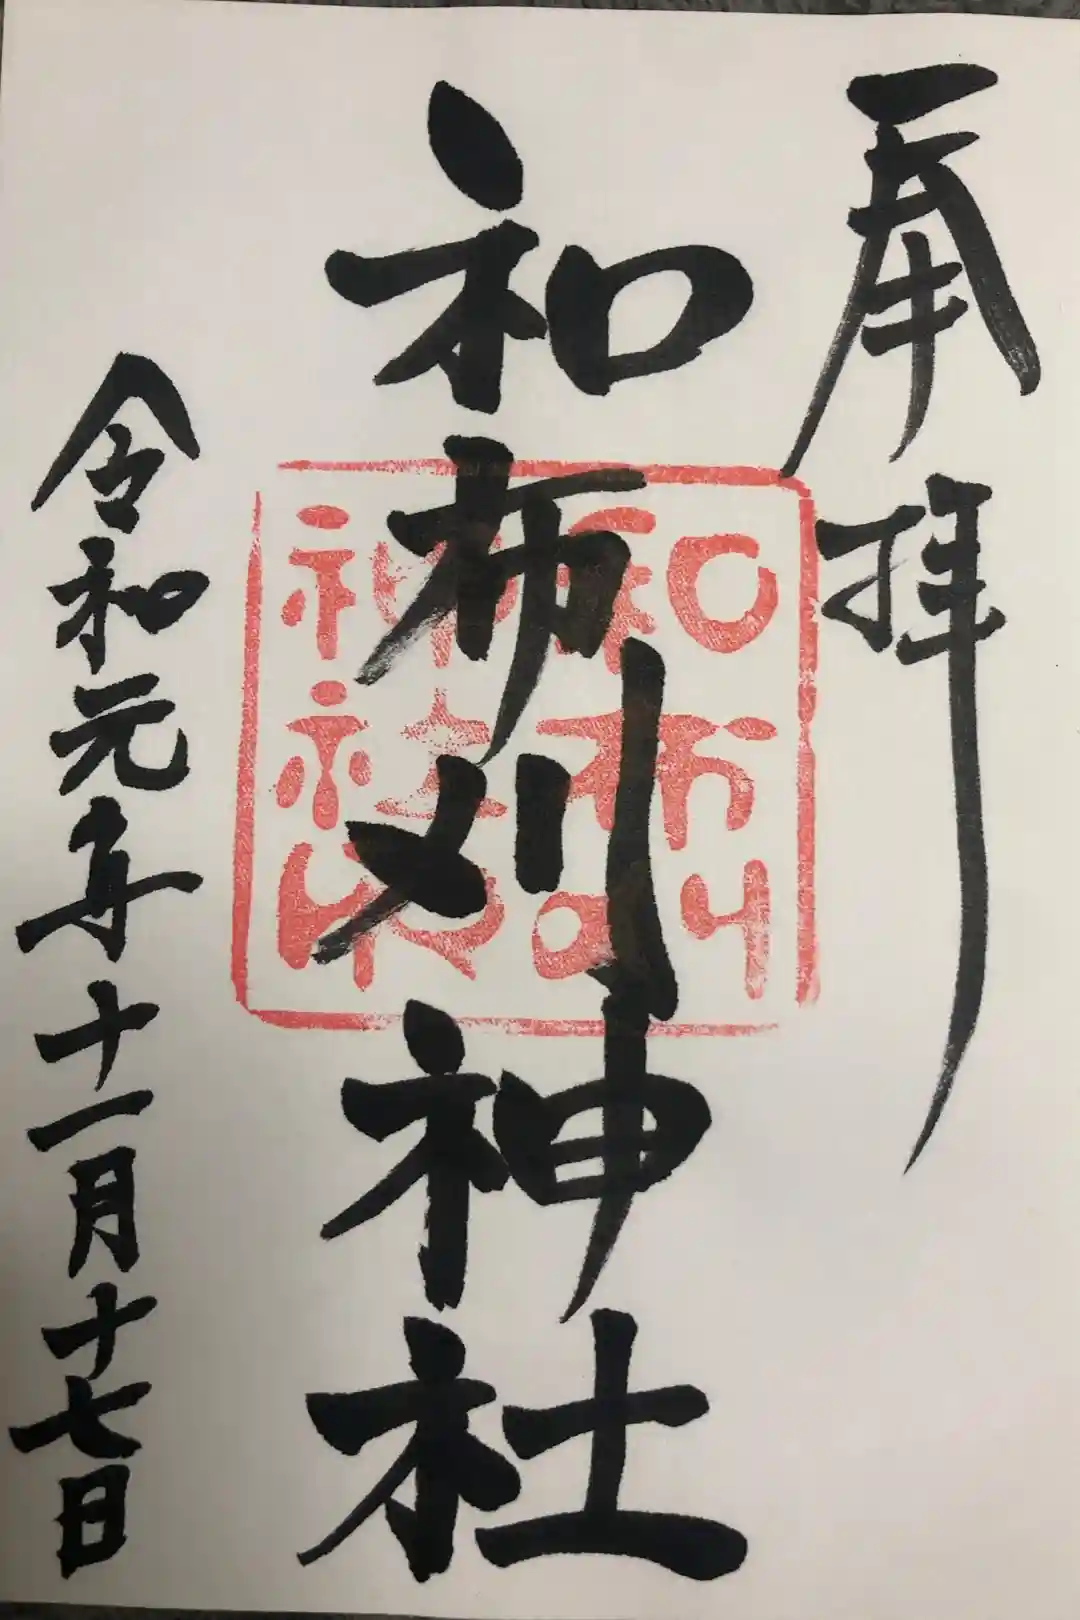 奉拝
和布刈神社
令和元年十一月十七日
和布刈
神社